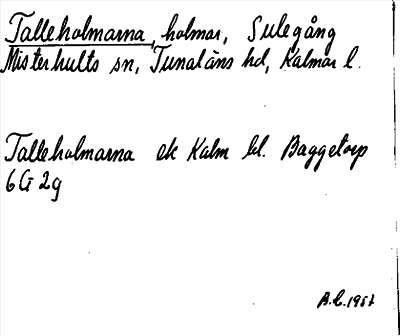 Talleholmarna, holmar, Sulegång
Misterhults sn, Tunaläns hd, Kalmar l.
Talleholmarna ek Kalm bl. Baggetorp
6G 2g